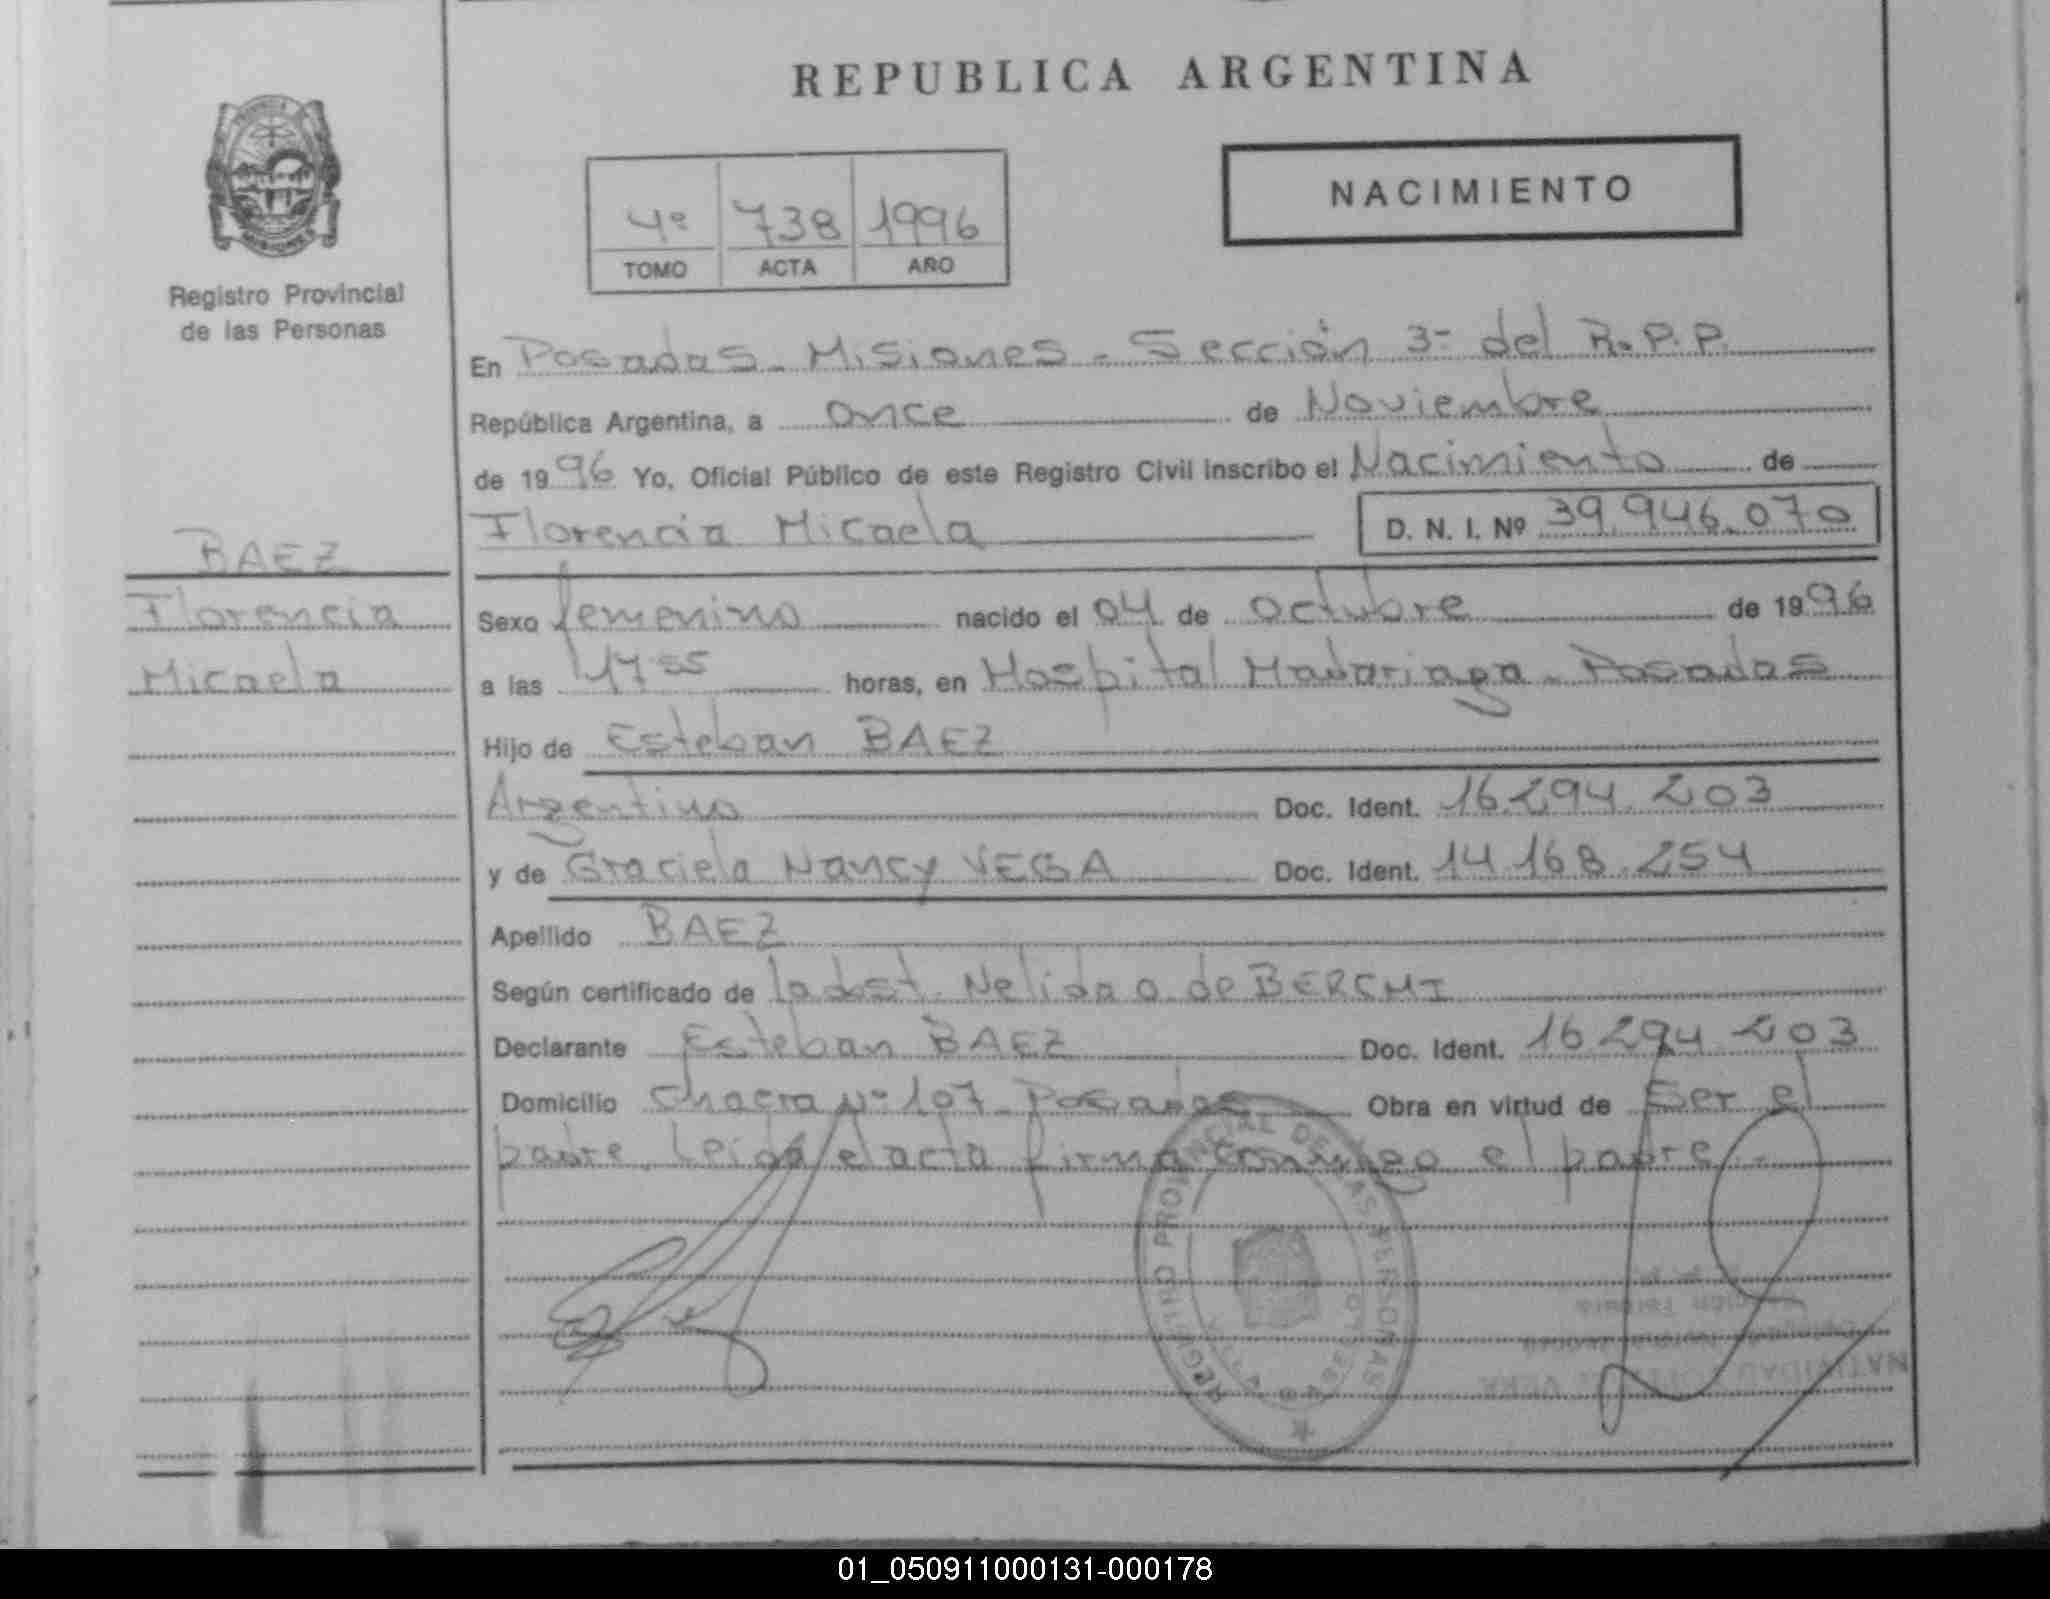 REPUBLICA ARGENTINA
NACIMIENTO
4º 738 1996
TOMO ACTA AÑO
Registro Provincial
de las Personas
En Posadas - Misiones - Sección 3ª del R.P.P.
República Argentina, a once de Noviembre
de 1996 Yo, Oficial Público de este Registro Civil inscribo el Nacimiento de
Florencia Micaela D. N. I. Nº 39.946.070
BAEZ
Florencia
Micaela
Sexo femenino nacido el 04 de octubre de 1996
a las 17 55 horas, en Hospital Madariaga - Posadas
Hijo de Esteban BAEZ
Argentino Doc. Ident. 16.294.203
y de Graciela Nancy VEGA Doc. Ident. 14.168.254
Apellido BAEZ
Según certificado de la obst. Nelida O. de BERCHI
Declarante Esteban BAEZ Doc. Ident. 16 294 203
Domicilio Chacra Nº 107 - Posadas Obra en virtud de Ser el
padre. Leida el acta firma conmigo el padre.-
REGISTRO PROVINCIAL DE LAS PERSONAS
01_050911000131-000178